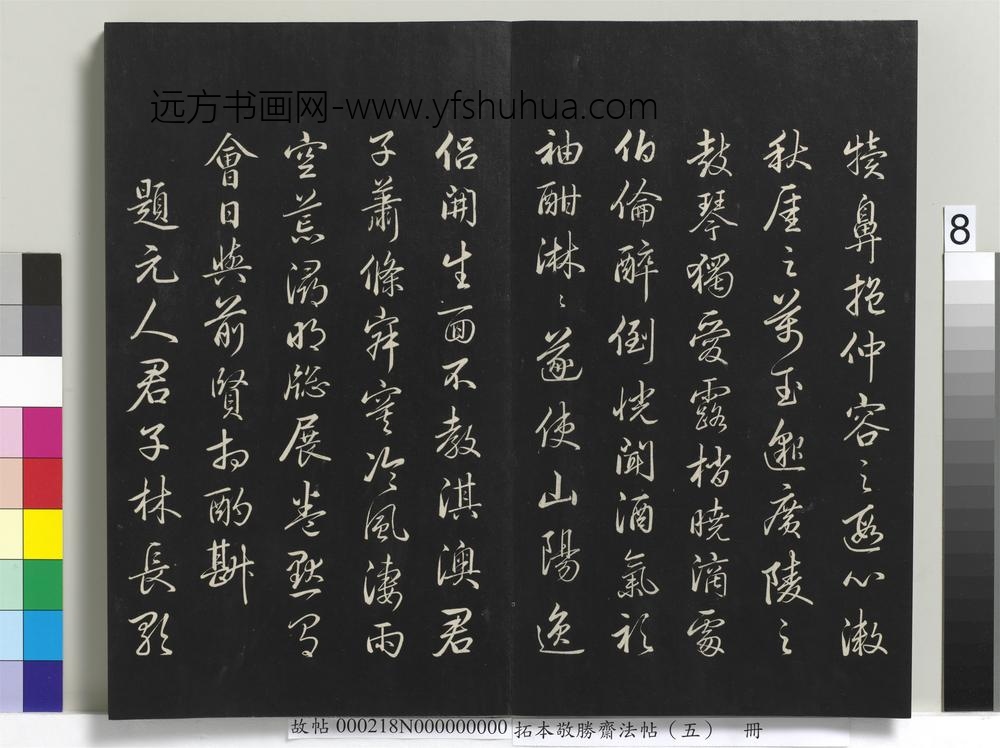 远方书画网-www.yfshuhua.com
犢鼻挹仲容之遐心漱
秋厓之萬玉邈廣陵之
鼓琴獨愛露梢曉滴處
伯倫醉倒恍聞酒氣衫
袖酣淋〻遂使山陽逸
侶開生面不教淇澳君
子蕭條寂寞冷風淒雨
空荒潯明牕展卷默
會日與前賢相酬斟
題元人君子林長歌
8
故帖 000218N000000000 拓本敬勝齋法帖（五） 冊